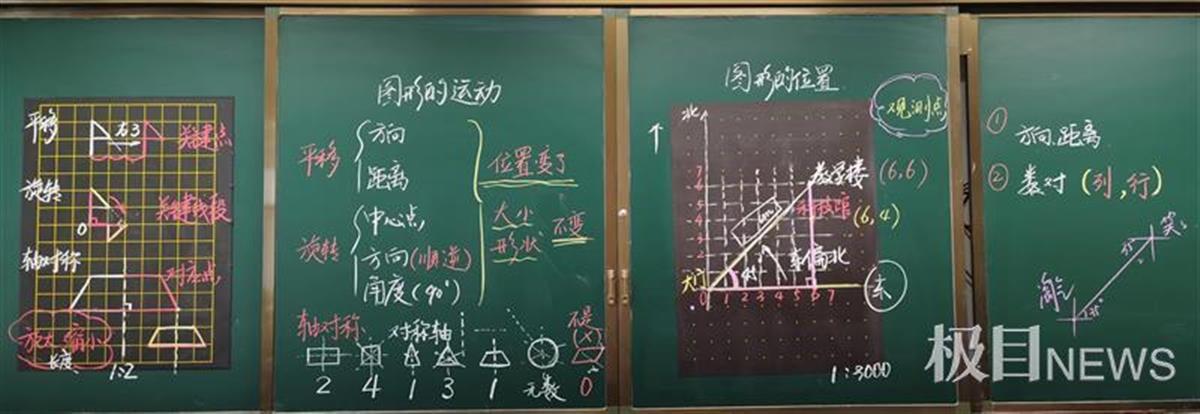 平移
右3
关键点
旋转
O
关键线段
轴对称
对应点
放大 缩小
长度
1:2
图形的运动
平移
方向
距离
位置变了
旋转
中心点
方向(顺 逆)
角度(90°)
大小
形状
不变
轴对称
对称轴
不是
2 4 1 3 1 无数 0
图形的位置
北
观测点
教学楼 (6,6)
(6,4)
东偏北
大门
东
7
6
5
4
3
2
1
0 1 2 3 4 5 6 7
1:3000
① 方向、距离
② 数对(列,行)
笑
淘气
极目NEWS